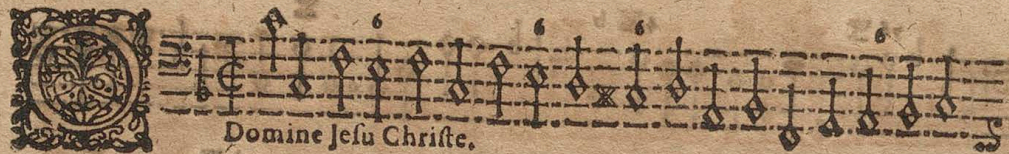 6 6 6 6
O Domine Jeſu Chriſte.